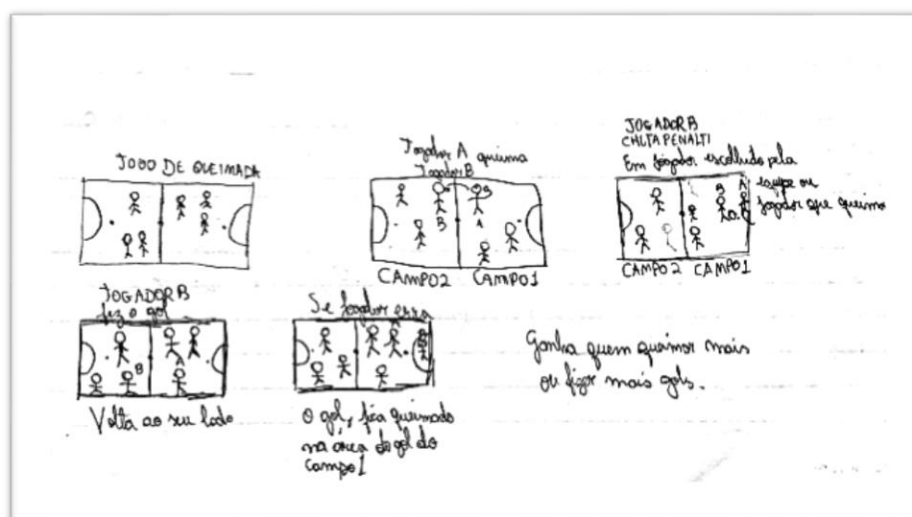 JOGO DE QUEIMADA
Jogador A queima
Jogador B
B
A
CAMPO2 CAMPO1
JOGADOR B
CHUTA PENALTI
Em jogador escolhido pela
equipe ou
jogador que queimo
B A
CAMPO2 CAMPO1
JOGADOR B
fez o gol
B
Volta ao seu lado
Se jogador erra
O gol, fica queimado
na área de gol do
campo 1
Ganha quem queimor mais
ou fizer mais gols.